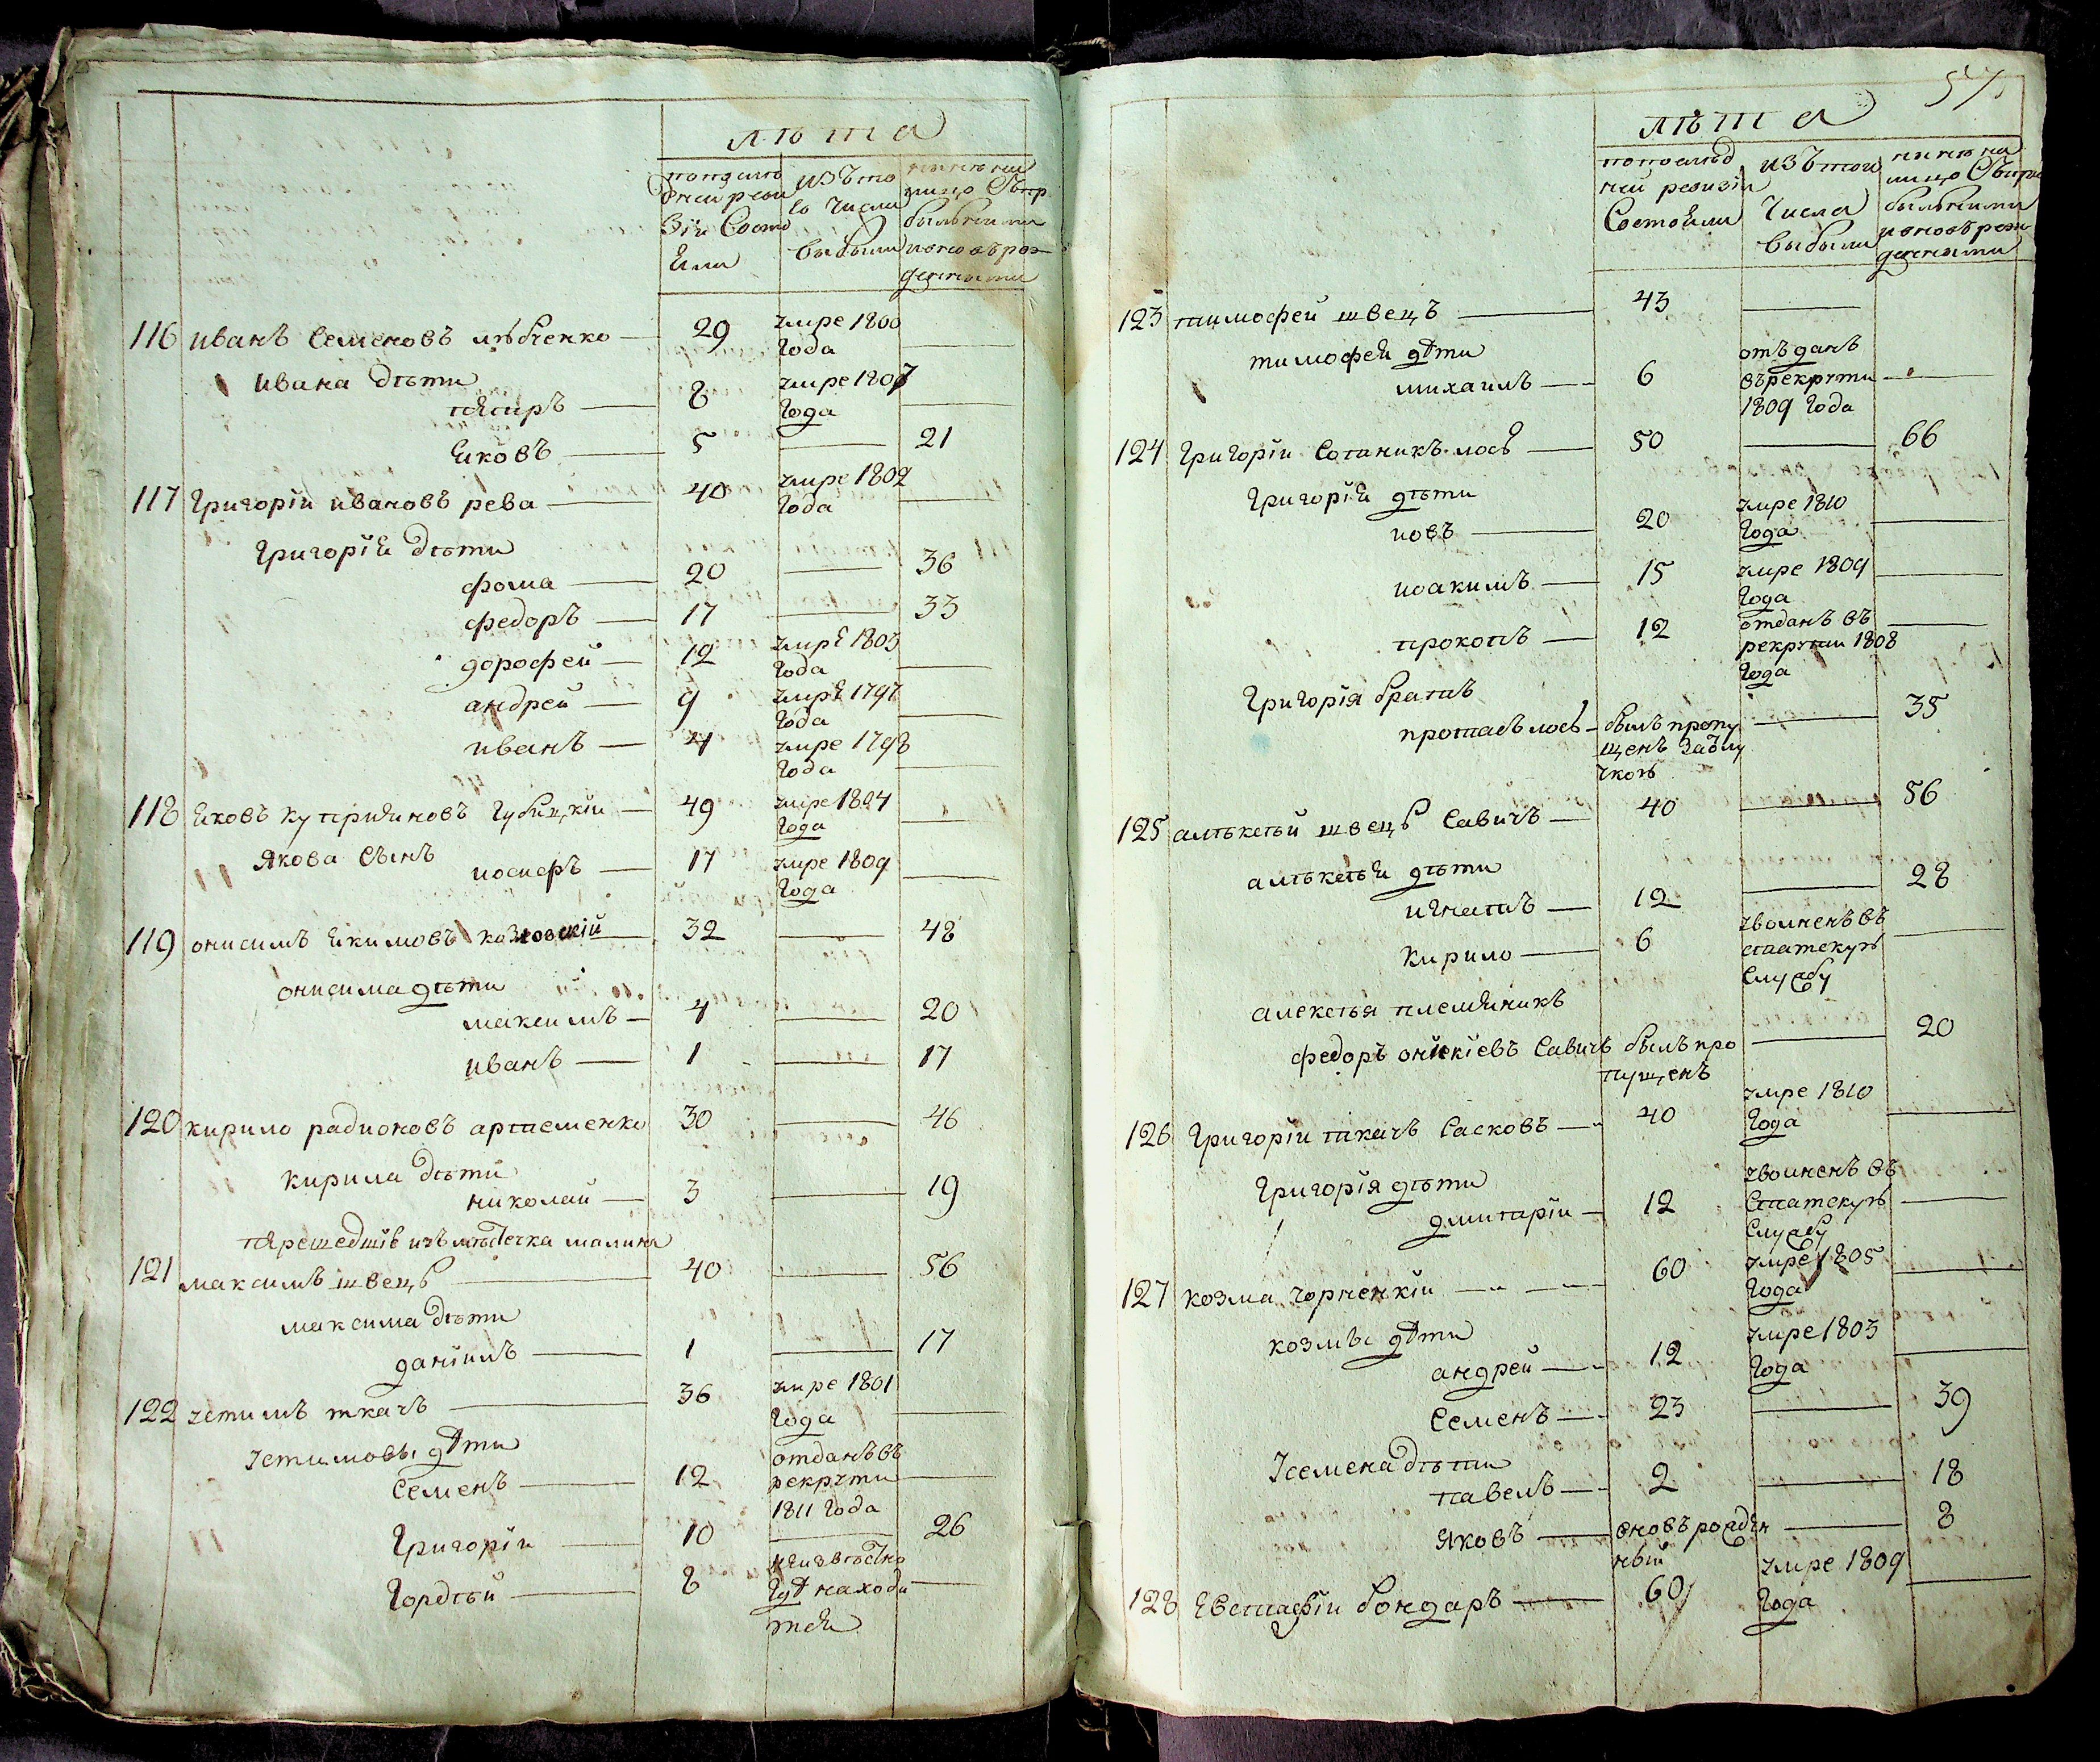 лѣта
по последней ревизіи Состояли
изъ того Числа выбыли
ныне на лицо Съ прибылыми и вновь рожденными
116 иванъ Семеновъ
29 умре 1800 Года
ивана дѣти
8 умре 1807 Года
яковъ 5 21
117 Григоріи ивановъ рева 40 умре 1802 Года
Григорія дѣти
фома 20 36
федоръ 17 33
дорофеи 12 умре 1803 Года
андреи 9 умре 1797 Года
иванъ 4 умре 1798 Года
118 яковъ куприяновъ Губицкіи 49 умре 1804 Года
якова Сынъ
иосифъ 17 умре 1809 Года
119 онисимъ якимовъ козловскій 32 48
онисима дѣти
максимъ 4 20
иванъ 1 17
120 кирило радионовъ артеменко 30 46
кирила дѣти
николаи 3 19
перешедшіе изъ мѣстечка малина
121 максимъ швецъ 40 56
максима дѣти
даніилъ 1 17
122 устимъ ткачъ 36 умре 1801 Года
устимовы дѣти
Семенъ 12 отданъ въ рекруты 1811 Года
Григоріи 10 26
Гордѣи 8 неизвѣстно гдѣ находится
57
лѣта
по последней ревизіи Состояли
изъ того Числа выбыли
ныне на лицо Съ прибылыми и вновь рожденными
123 тимофеи швецъ 43
тимофея дѣти
михаилъ 6 отъданъ въ рекруты 1809 Года
124 Григоріи Сотаникъ лось 50 66
Григорія дѣти
иовъ 20 умре 1810 Года
иоакимъ 15 умре 1809 Года
прокопъ 12 отданъ въ рекруты 1808 Года
Григорія братъ
протасъ лось былъ пропущенъ 35
125 алѣксѣй швецъ Савичъ 40 56
алѣксѣя дѣти
игнатъ 12 28
Кирило 6 уволненъ въ статскую Службу
алексѣя племяникъ
федоръ Савичъ былъ пропущенъ 20
126 Григоріи ткачъ Сасковъ 40 умре 1810 Года
Григорія дѣти
дмитріи 12 уволненъ въ Статскую Службу
127 козма чорненкіи 60 умре 1805 Года
козмы дѣти
андреи 12 умре 1803 Года
Семенъ 23 39
у семена дѣти
павелъ 2 18
яковъ вновъ рожденный 8
128 Евстафіи бондаръ 60 умре 1809 Года